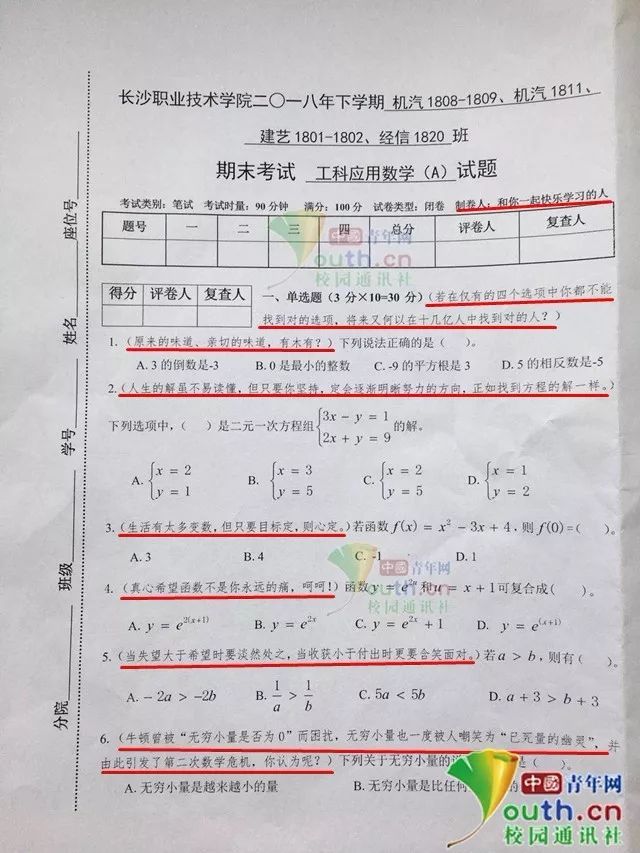 长沙职业技术学院二〇一八年下学期 机汽1808-1809、机汽1811、
建艺1801-1802、经信1820 班
期末考试 工科应用数学（A）试题
考试类别：笔试 考试时量：90 分钟 满分：100 分 试卷类型：闭卷 制卷人：和你一起快乐学习的人
题号 一 二 三 四 总分 评卷人 复查人
得分 评卷人 复查人
一、单选题（3 分×10=30 分）（若在仅有的四个选项中你都不能
找到对的选项，将来又何以在十几亿人中找到对的人？）
1. （原来的味道、亲切的味道，有木有？）下列说法正确的是（ ）。
A. 3 的倒数是-3 B. 0 是最小的整数 C. -9 的平方根是 3 D. 5 的相反数是-5
2. （人生的解虽不易读懂，但只要你坚持，定会逐渐明晰努力的方向，正如找到方程的解一样。）
下列选项中，（ ）是二元一次方程组 {3x − y = 1 2x + y = 9 的解。
A. {x = 2 y = 1 B. {x = 3 y = 5 C. {x = 2 y = 5 D. {x = 1 y = 2
3. （生活有太多变数，但只要目标定，则心定。）若函数 f(x) = x² − 3x + 4，则 f(0)=（ ）。
A. 3 B. 4 C. -1 D. 1
4. （真心希望函数不是你永远的痛，呵呵！）函数 y = e^{2u} 和 u = x + 1 可复合成（ ）。
A. y = e^{2(x+1)} B. y = e^{2x} C. y = e^{2x} + 1 D. y = e^{(x+1)}
5. （当失望大于希望时要淡然处之，当收获小于付出时更要含笑面对。）若 a > b，则有（ ）。
A. − 2a > −2b B. 1/a > 1/b C. 5a < 5b D. a + 3 > b + 3
6. （牛顿曾被“无穷小量是否为 0”而困扰，无穷小量也一度被人嘲笑为“已死量的幽灵”，并
由此引发了第二次数学危机，你认为呢？）下列关于无穷小量的 是（ ）。
A. 无穷小量是越来越小的量 B. 无穷小量是比任何
座位号
姓名
学号
班级
分院
中國青年网
Youth.cn
校园通讯社
中國青年网
校园通讯社
中國青年网
youth.cn
校园通讯社